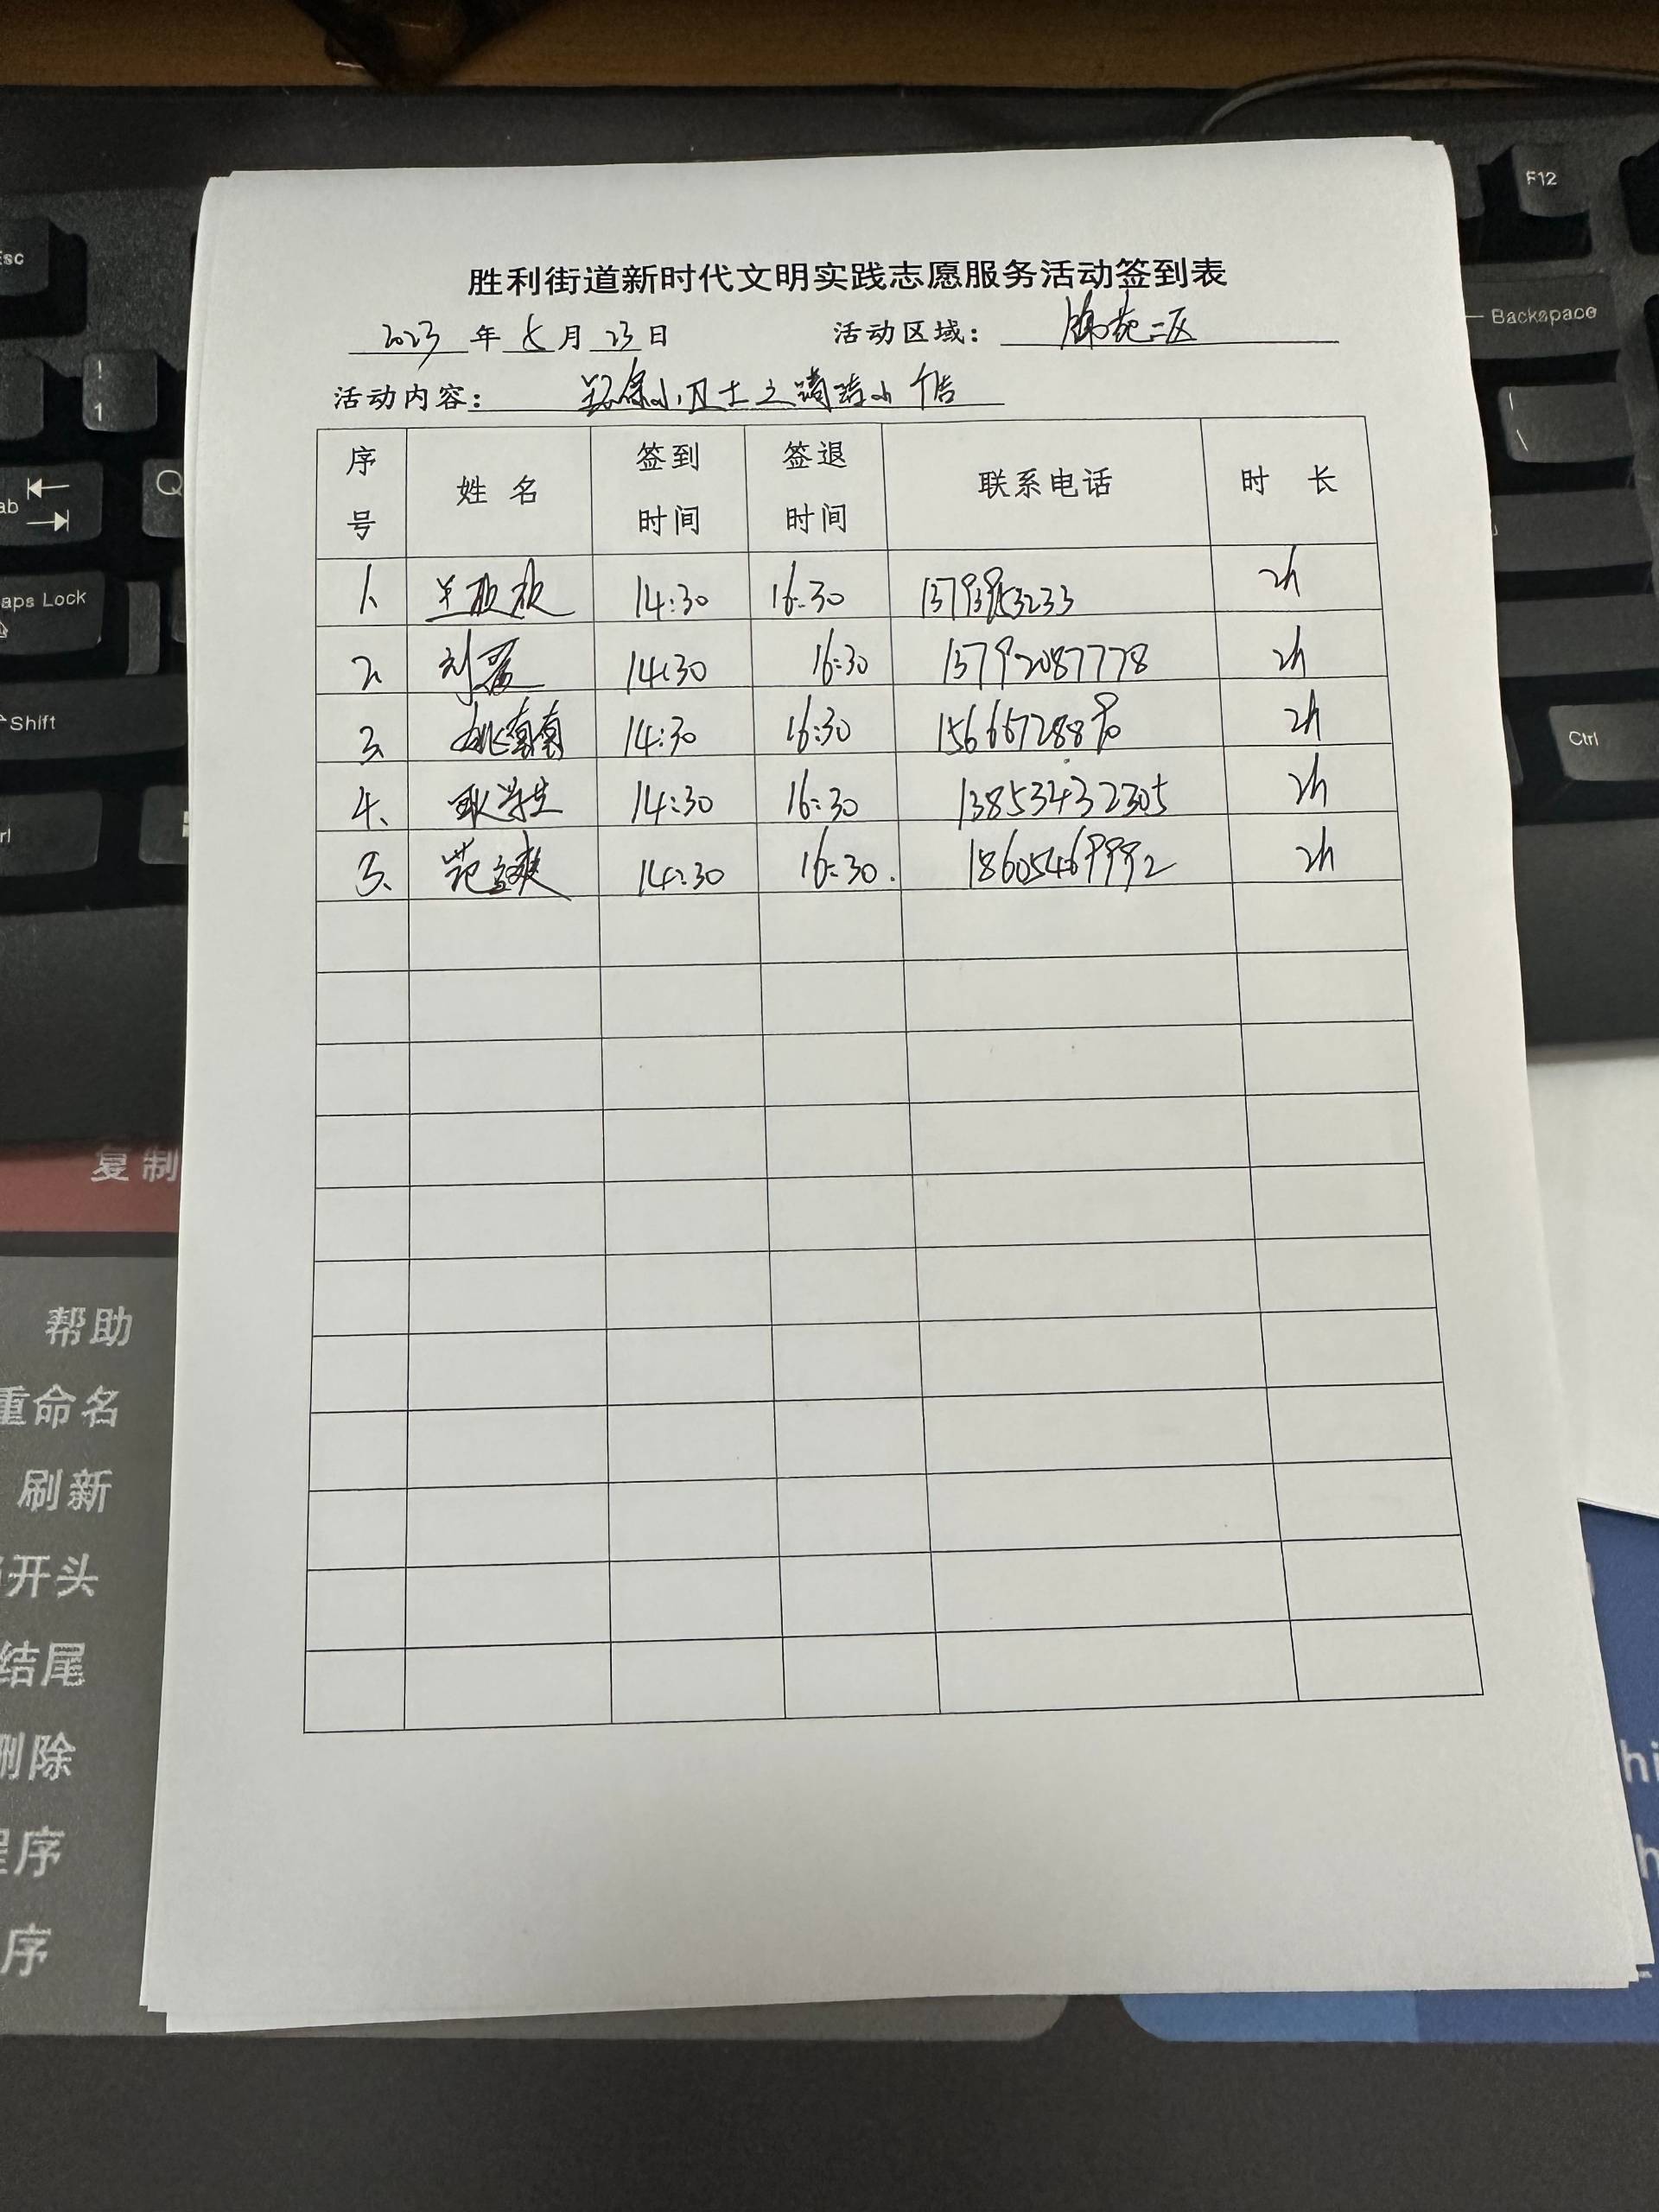 F12
Esc
Backspace
1
Q
Caps Lock
Shift
Ctrl
胜利街道新时代文明实践志愿服务活动签到表
2023 年 5 月 23 日 活动区域: 锦苑二区
活动内容: 环保小卫士之清洁小广告
序号 姓名 签到时间 签退时间 联系电话 时长
1、 14:30 16:30 2h
2、 14:30 16:30 13792087778 2h
3、 姚南南 14:30 16:30 2h
4、 耿学生 14:30 16:30 13853432305 2h
5、 范立爽 14:30 16:30. 18605469992 2h
复制
帮助
重命名
刷新
开头
结尾
删除
程序
序